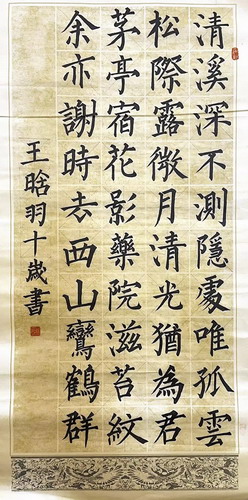 清溪深不測隱處唯孤雲
松際露微月清光猶為君
茅亭宿花影藥院滋苔紋
余亦謝時去西山鸞鶴群
王晗羽十歲書